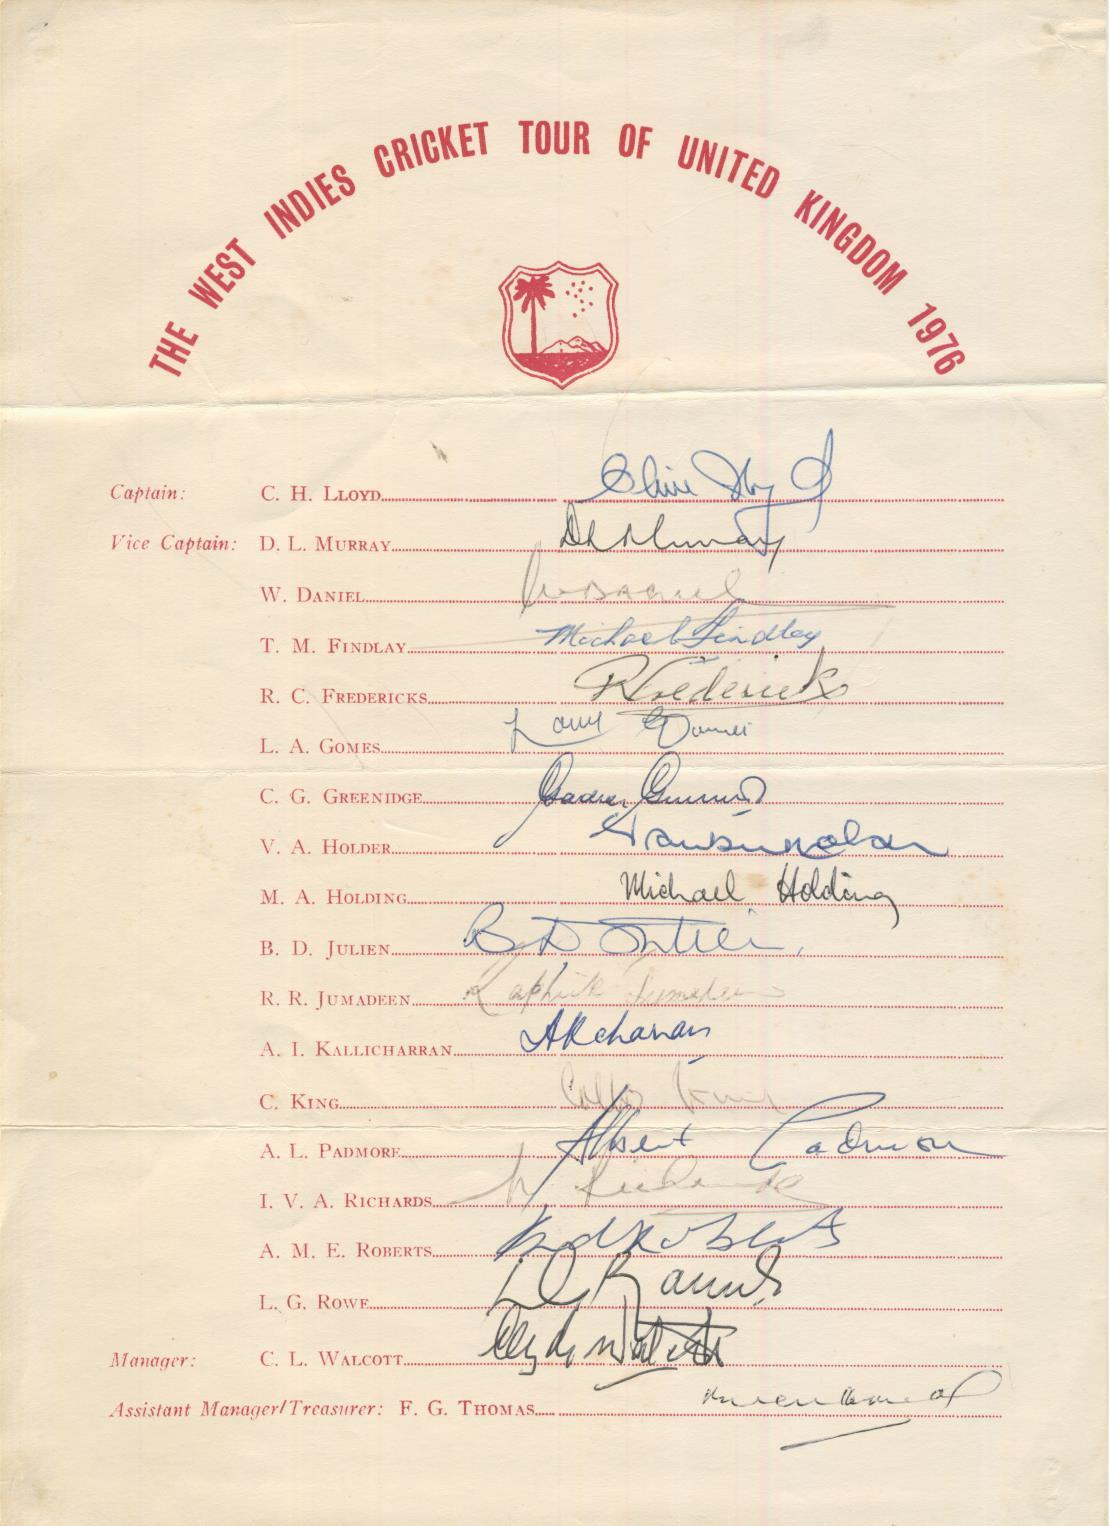 THE WEST INDIES CRICKET TOUR OF UNITED KINGDOM 1976
Captain: C. H. LLOYD Clive Lloyd
Vice Captain: D. L. MURRAY DL Murray
W. DANIEL W Daniel
T. M. FINDLAY Michael Findlay
R. C. FREDERICKS R Fredericks
L. A. GOMES Larry Gomes
C. G. GREENIDGE
V. A. HOLDER Vanburn Holder
M. A. HOLDING Michael Holding
B. D. JULIEN B D Julien
R. R. JUMADEEN Raphick Jumadeen
A. I. KALLICHARRAN
C. KING Collis King
A. L. PADMORE Albert Padmore
I. V. A. RICHARDS Richards
A. M. E. ROBERTS Roberts
L. G. ROWE
Manager: C. L. WALCOTT Clyde Walcott
Assistant Manager/Treasurer: F. G. THOMAS